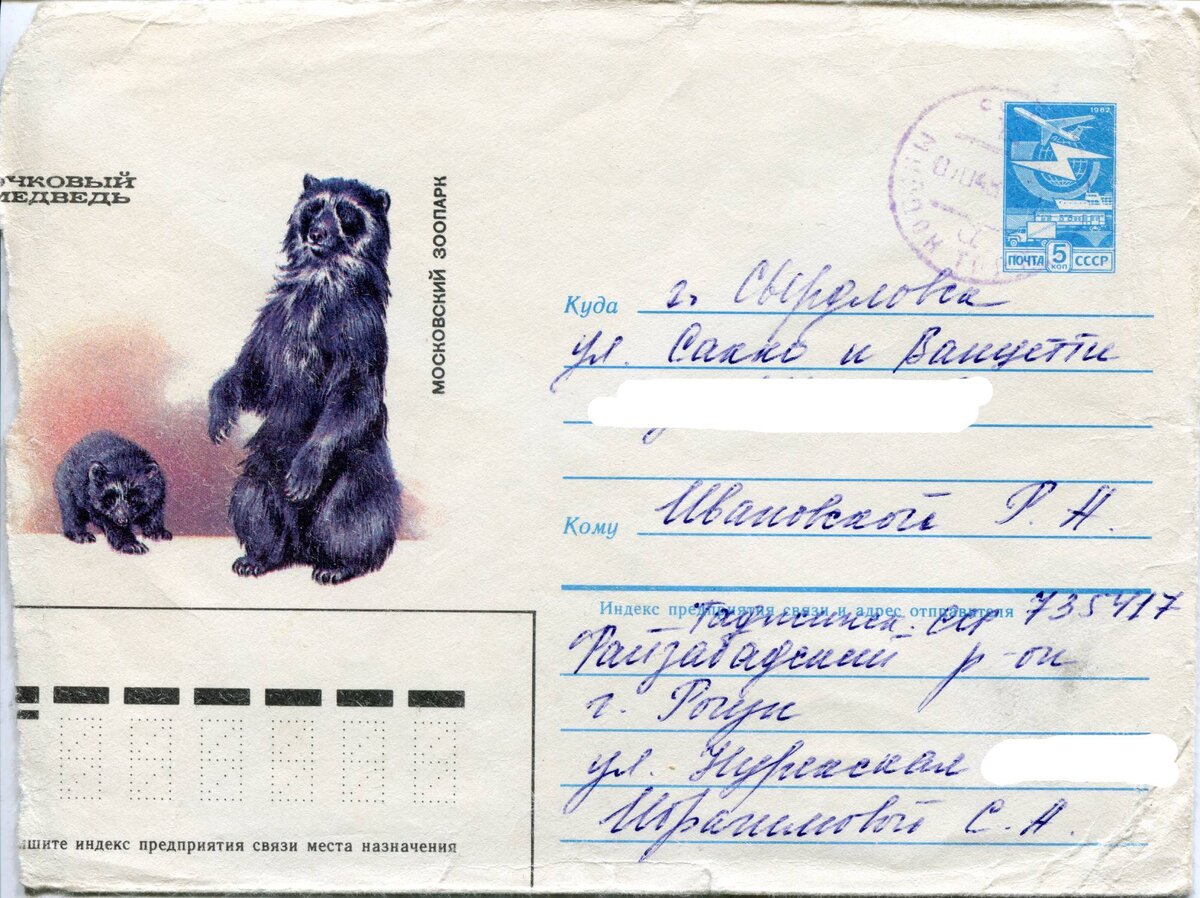 ОЧКОВЫЙ
МЕДВЕДЬ
МОСКОВСКИЙ ЗООПАРК
1982
ПОЧТА 5 КОП СССР
Куда г. Свердловск
ул. Сакко и Ванцетти
Кому Ивановской Р. А.
Индекс предприятия связи и адрес отправителя 735417
Таджикск. ССР
Файзабадский р-он
г. Рогун
ул. Нурекская
Ибрагимовой С. А.
ишите индекс предприятия связи места назначения